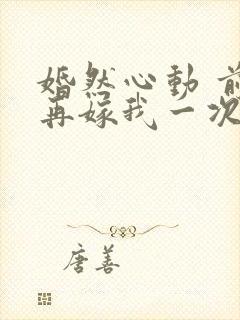 婚然心動 前
再嫁我一次
唐善